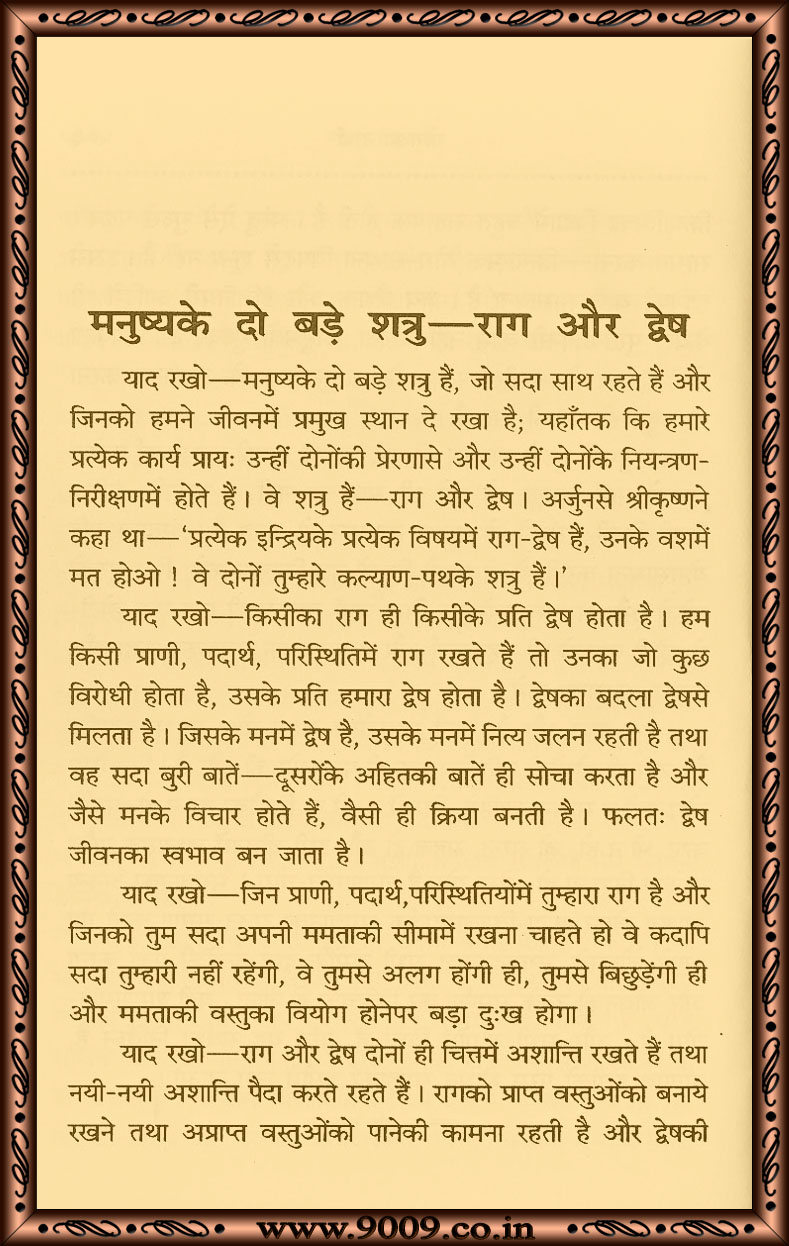 मनुष्यके दो बड़े शत्रु—राग और द्वेष
याद रखो—मनुष्यके दो बड़े शत्रु हैं, जो सदा साथ रहते हैं और
जिनको हमने जीवनमें प्रमुख स्थान दे रखा है; यहाँतक कि हमारे
प्रत्येक कार्य प्रायः उन्हीं दोनोंकी प्रेरणासे और उन्हीं दोनोंके नियन्त्रण-
निरीक्षणमें होते हैं। वे शत्रु हैं—राग और द्वेष। अर्जुनसे श्रीकृष्णने
कहा था—‘प्रत्येक इन्द्रियके प्रत्येक विषयमें राग-द्वेष हैं, उनके वशमें
मत होओ ! वे दोनों तुम्हारे कल्याण-पथके शत्रु हैं।’
याद रखो—किसीका राग ही किसीके प्रति द्वेष होता है। हम
किसी प्राणी, पदार्थ, परिस्थितिमें राग रखते हैं तो उनका जो कुछ
विरोधी होता है, उसके प्रति हमारा द्वेष होता है। द्वेषका बदला द्वेषसे
मिलता है। जिसके मनमें द्वेष है, उसके मनमें नित्य जलन रहती है तथा
वह सदा बुरी बातें—दूसरोंके अहितकी बातें ही सोचा करता है और
जैसे मनके विचार होते हैं, वैसी ही क्रिया बनती है। फलतः द्वेष
जीवनका स्वभाव बन जाता है।
याद रखो—जिन प्राणी, पदार्थ,परिस्थितियोंमें तुम्हारा राग है और
जिनको तुम सदा अपनी ममताकी सीमामें रखना चाहते हो वे कदापि
सदा तुम्हारी नहीं रहेंगी, वे तुमसे अलग होंगी ही, तुमसे बिछुड़ेंगी ही
और ममताकी वस्तुका वियोग होनेपर बड़ा दुःख होगा।
याद रखो—राग और द्वेष दोनों ही चित्तमें अशान्ति रखते हैं तथा
नयी-नयी अशान्ति पैदा करते रहते हैं। रागको प्राप्त वस्तुओंको बनाये
रखने तथा अप्राप्त वस्तुओंको पानेकी कामना रहती है और द्वेषकी
www.9009.co.in